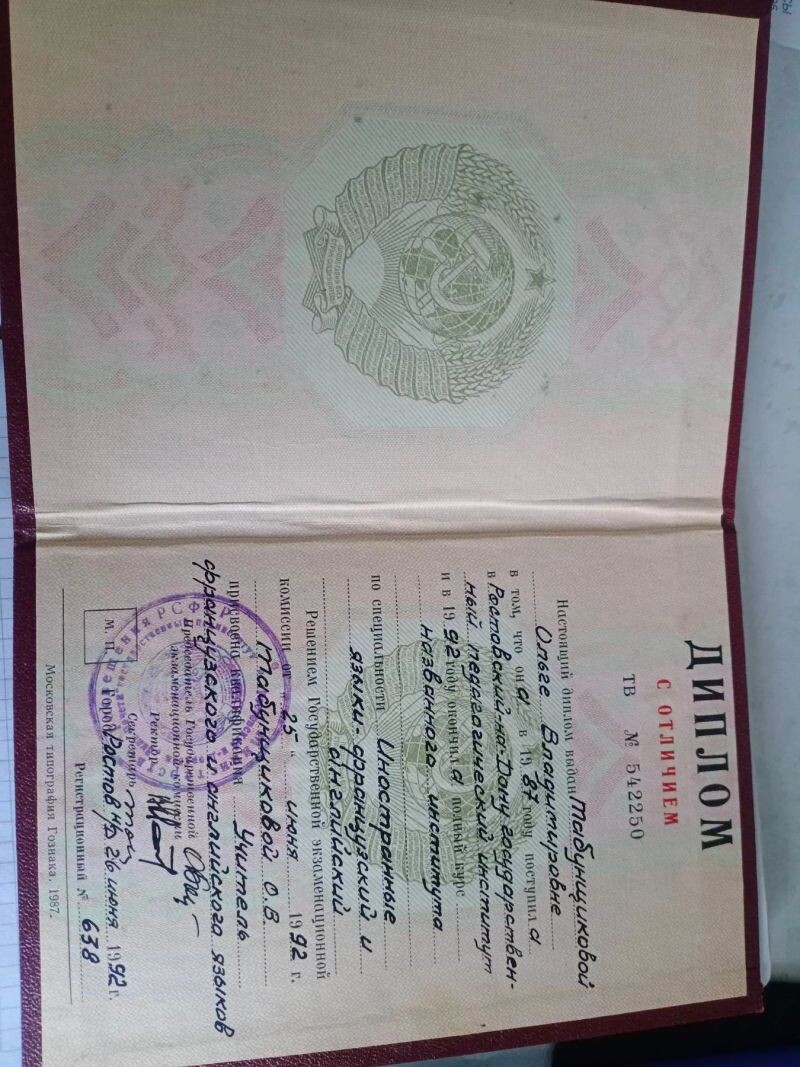 ДИПЛОМ
С ОТЛИЧИЕМ
ТВ № 542250
Настоящий диплом выдан Табунщиковой
Ольге Владимировне
в том, что она в 1987 году поступила
в Ростовский-на-Дону государствен-
ный педагогический институт
и в 1992 году окончила полный курс
названного института
по специальности Иностранные
языки-французский и
английский
Решением Государственной экзаменационной
комиссии от "25" июня 1992 г.
Табунщиковой О.В.
присвоена квалификация Учитель
французского и английского языков
Председатель Государственной
экзаменационной комиссии
Ректор
Секретарь
М. П.
Город Ростов н/Д 26 июня 1992 г.
Регистрационный № 638
Московская типография Гознака. 1987.